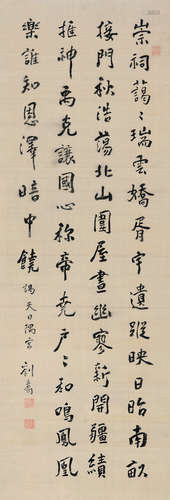 崇祠藹々瑞雲嬌胥宇遺蹤映日昭南畝
接門秋浩蕩北山圍屋晝幽寥新開疆績
推神禹克讓國心称帝堯戸々和鳴鳳凰
樂誰知恩澤暗中饒 謁天日隅宮 劉